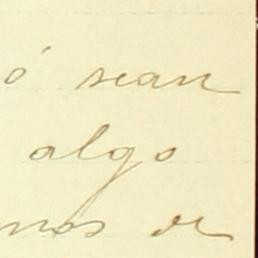 ó sean
algo
mos de